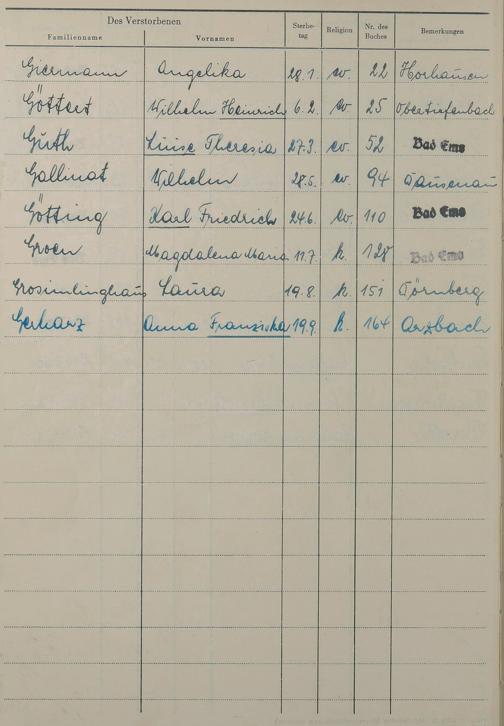 Des Verstorbenen Sterbe- Religion Nr. des Bemerkungen
Familienname Vornamen tag Buches
Giermann Angelika 28.1. ev. 22 Horhausen
Göttert Wilhelm Heinrich 6.2. ev 25 Obertiefenbach
Guth Luise Theresia 27.3. ev. 52 Bad Ems
Gallinat Wilhelm 28.5. ev. 94 Dausenau
Götting Karl Friedrich 24.6. ev. 110 Bad Ems
Groen Magdalena Maria 11.7. k. 128 Bad Ems
Grosimlinghaus Laura 19.8. k. 151 Dörnberg
Gerharz Anna Franziska 19.9. k. 164 Arzbach